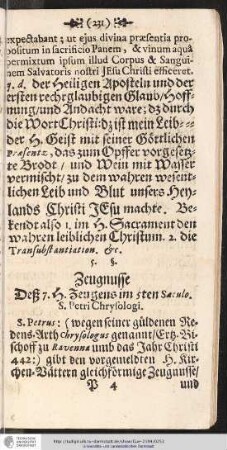 (231)
expectabant; ut ejus divina præsentia pro-
politum in sacrificio Panem, & vinum aquâ
permixtum ipsum illud Corpus & Sangui-
nem Salvatoris nostri JEsu Christi efficeret.
q. d. der Heiligen Aposteln und der
ersten rechtglaubigen Glaub/Hoff-
nung/und Andacht ware: dz durch
die Wort Christi: dz ist mein Leib
der H. Geist mit seiner Göttlichen
Præsentz, das zum Opffer vorgesetz-
te Brodt / und Wein mit Wasser
vermischt/ zu dem wahren wesent-
lichen Leib und Blut unsers Hey-
lands Christi JEsu machte. Be-
kendt also 1. im H. Sacrament den
wahren leiblichen Christum. 2. die
Transubstantiation. &c.
§. 5.
Zeugnusse
Deß 7. H. Zeugens im 5ten Sæculo.
S. Petri Chrysologi.
S. Petrus: (wegen seiner güldenen Re-
dens-Arth Chrysologus genannt/Ertz-Bi-
schoff zu Ravenna umb das Jahr Christi
442:) gibt den vorgemeldten H. Kir-
chen-Vättern gleichförmige Zeugnusse/
P 4 und